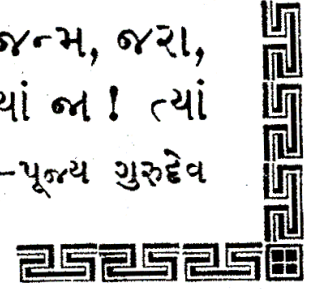 જન્મ, જરા,
યાં જા ! ત્યાં
–પૂજ્ય ગુરુદેવ